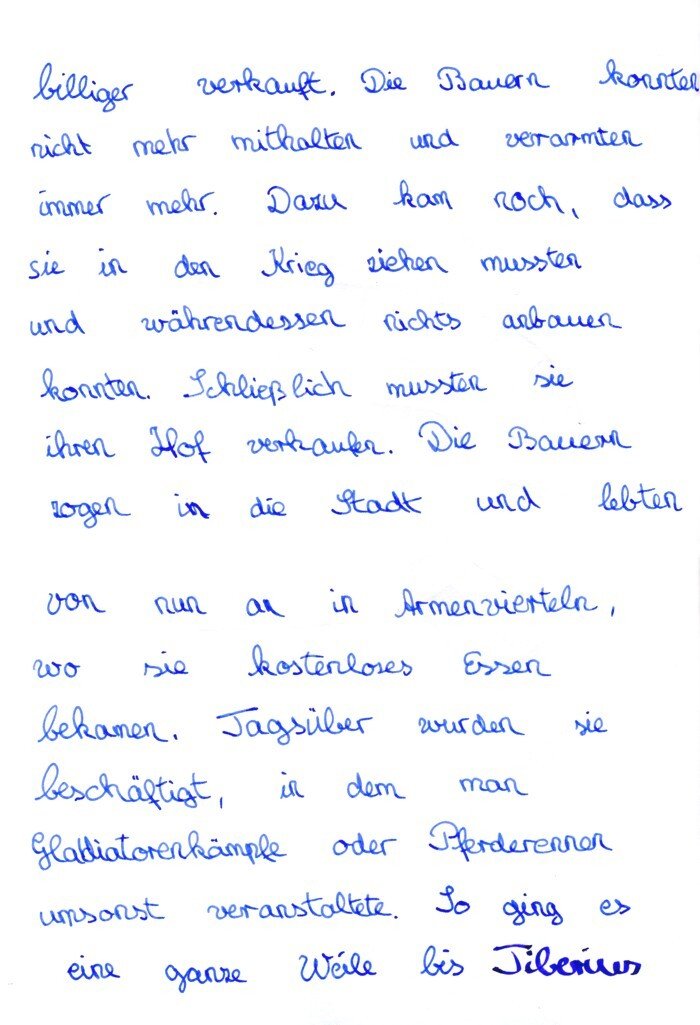 billiger verkauft. Die Bauern konnten
nicht mehr mithalten und verarmten
immer mehr. Dazu kam noch, dass
sie in den Krieg ziehen mussten
und währendessen nichts anbauen
konnten. Schließlich mussten sie
ihren Hof verkaufen. Die Bauern
zogen in die Stadt und lebten
von nun an in Armenvierteln,
wo sie kostenloses Essen
bekamen. Tagsüber wurden sie
beschäftigt, in dem man
Gladiatorenkämpfe oder Pferderennen
umsonst veranstaltete. So ging es
eine ganze Weile bis Tiberius